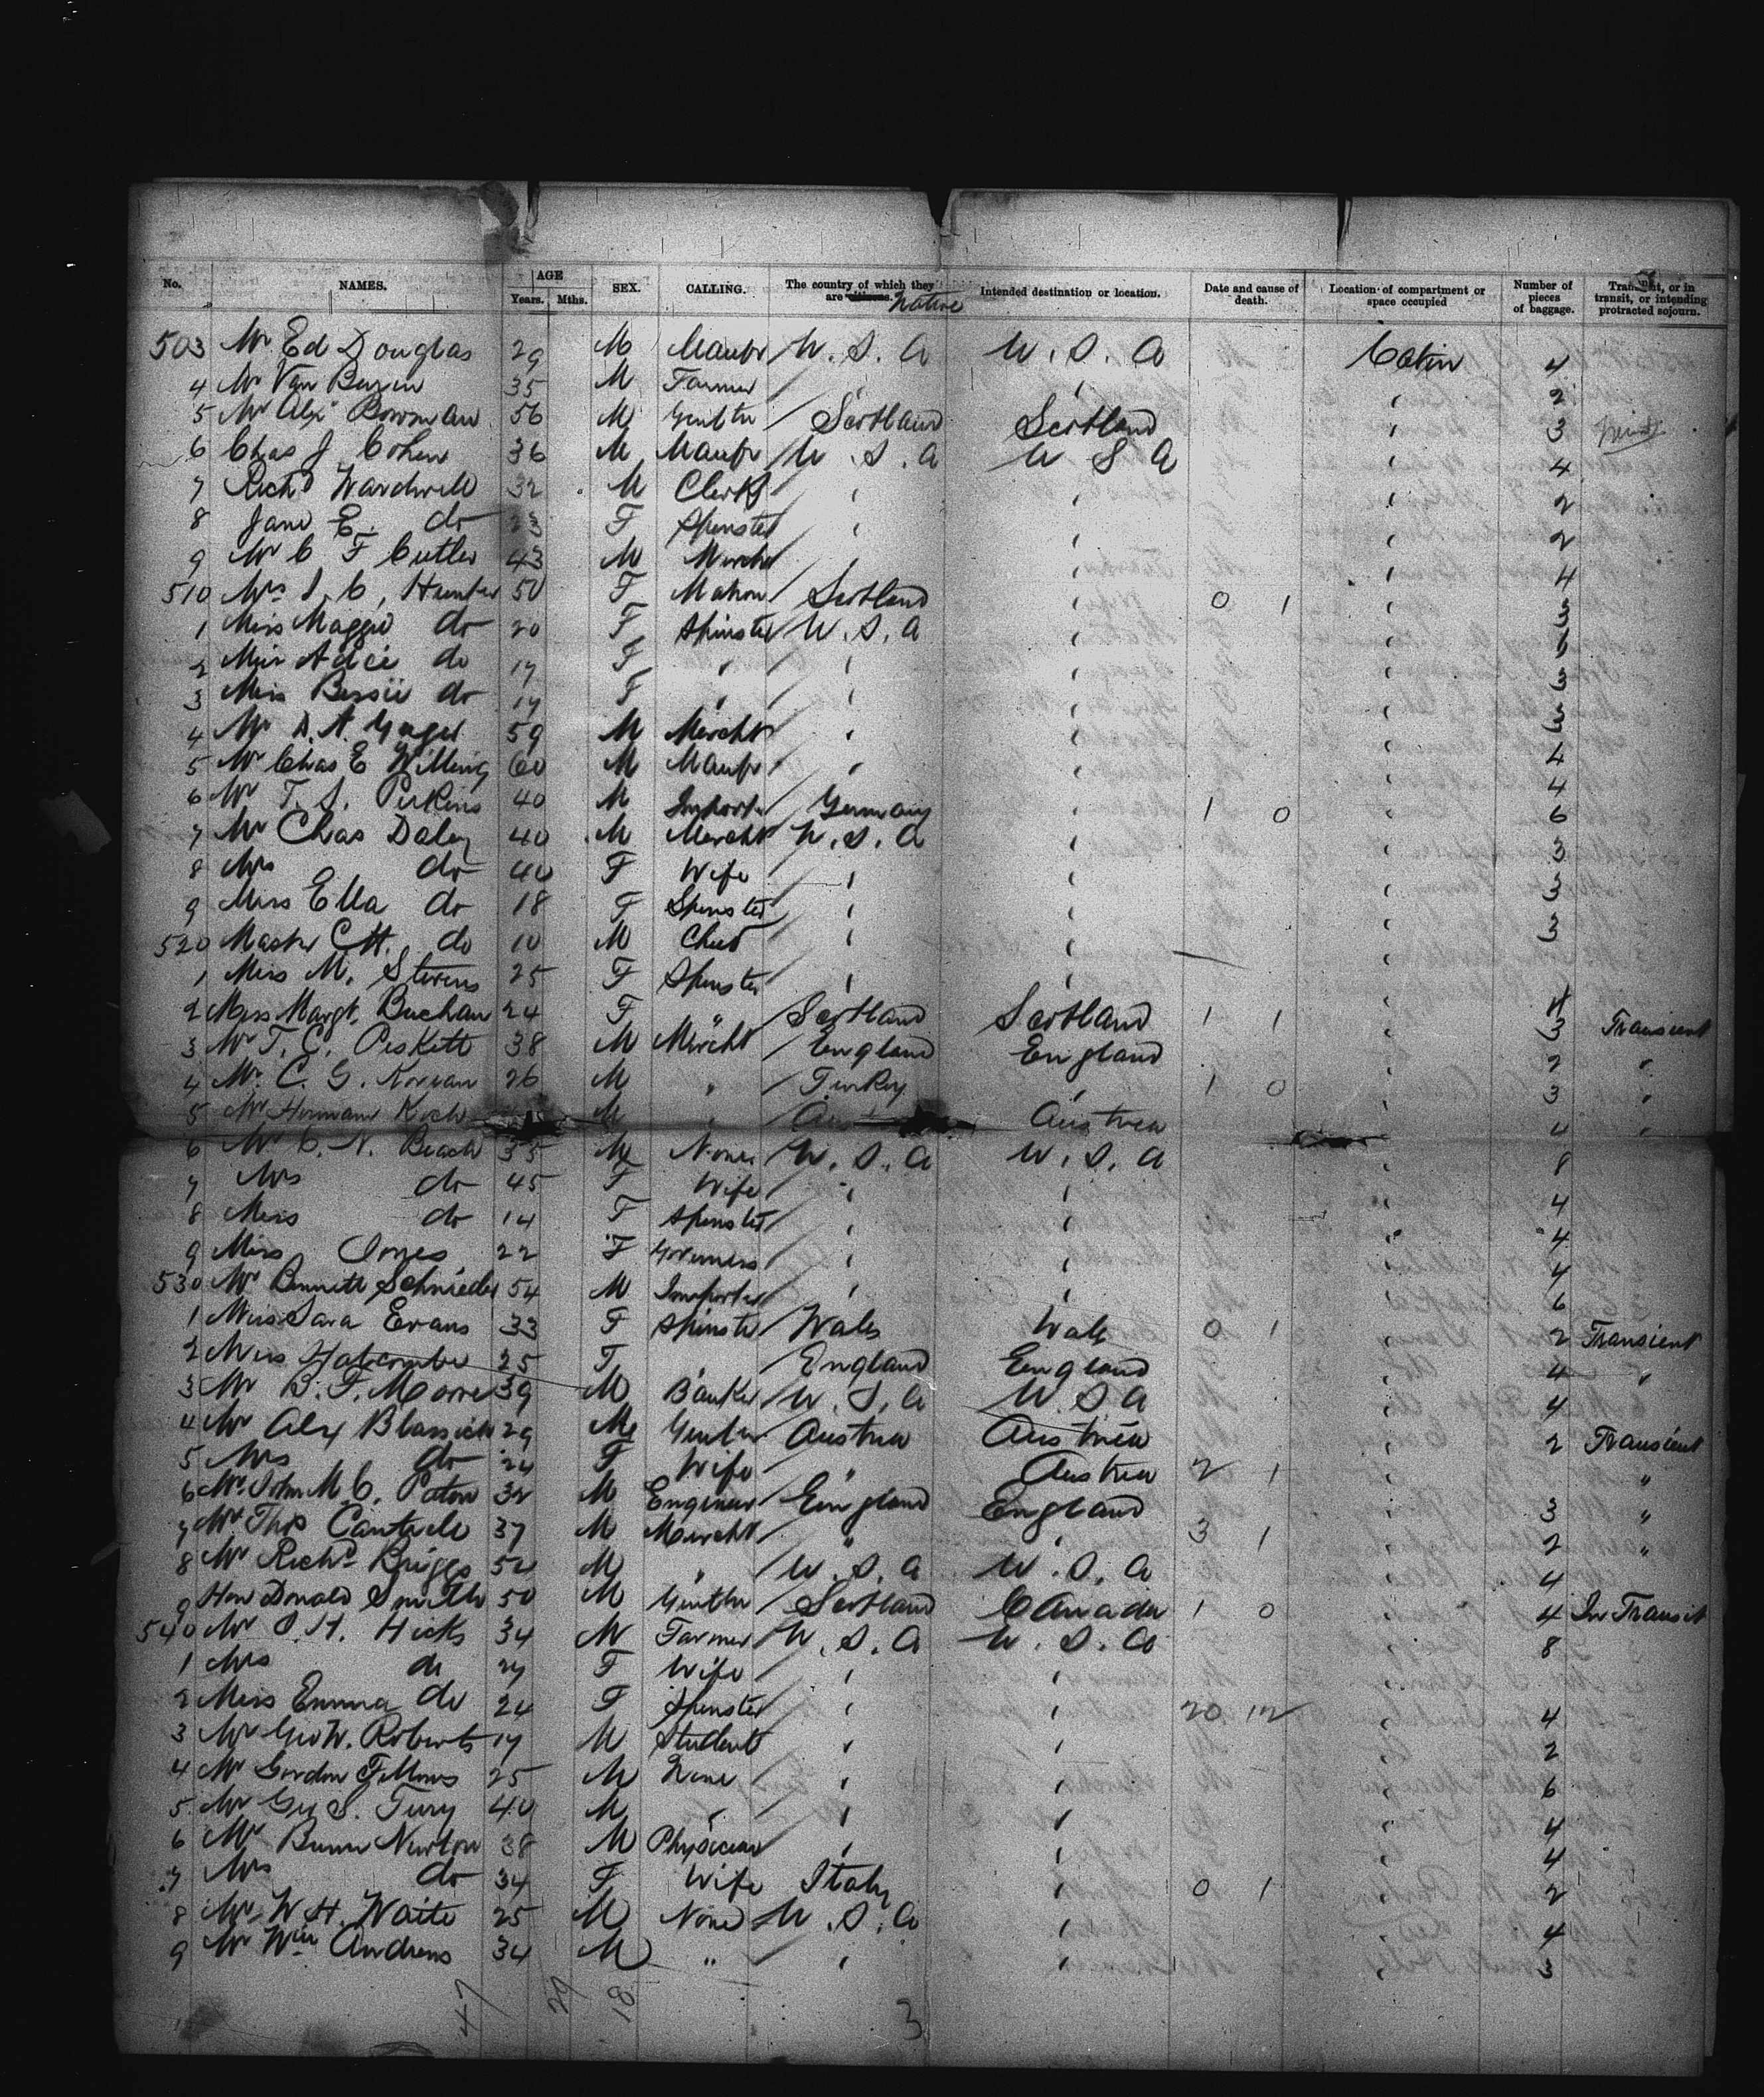 No. NAMES. AGE Years. Mths. SEX. CALLING. The country of which they are citizens. Native Intended destination or location. Date and cause of death. Location of compartment or space occupied Number of pieces of baggage. Transient, or in transit, or intending protracted sojourn.
503 Mr Ed Douglas 29 M Manfr U.S.A U.S.A Cabin 4
4 Mr Van Buren 35 M Farmer " " " 2
5 Mr Alexr Bowman 56 M Gentln Scotland Scotland " 3
6 Chas J Cohen 36 M Manfr U.S.A U S A " 4
7 Richd Wardwell 32 M Clerk " " " 2
8 Jane E. do 23 F Spinster " " " 2
9 Mr C F Cutler 43 M Mercht " " " 4
510 Mrs J. C. Hunter 50 F Matron Scotland " 0 1 " 3
1 Miss Maggie do 20 F Spinster U.S.A " " 3
2 Miss Adie do 17 F " " " " 3
3 Miss Bessie do 17 F " " " " 3
4 Mr D. A. Yager 59 M Mercht " " " 4
5 Mr Chas E Willing 60 M Manfr " " " 4
6 Mr T. J. Perkins 40 M Importr Germany " 1 0 " 6
7 Mr Chas Daley 40 M Mercht U.S.A " " 3
8 Mrs do 40 F Wife " " " 3
9 Miss Ella do 18 F Spinster " " " 3
520 Master C.H. do 10 M Child " " "
1 Miss M. Stevens 25 F Spinster " " " 4
2 Miss Margt. Buchan 24 F " Scotland Scotland 1 1 " 3 Transient
3 Mr T. C. Peskett 38 M Mercht England England " 2 "
4 Mr C. G. 26 M " Turkey " 1 0 " 3 "
5 Mr Hermann Koch M " Aus Austria " 4 "
6 Mr C. N. Beach 55 M None U.S.A U.S.A " 8
7 Mrs do 45 F Wife " " " 4
8 Miss do 14 F Spinster " " " 4
9 Miss Jones 22 F Governess " " " 4
530 Mr Bennett Schnieder 54 M Importer " " " 6
1 Miss Sara Evans 33 F Spinster Wales Wales 0 1 " 2 Transient
2 Miss Halcombe 25 F " England England " 4 "
3 Mr B. F. Moore 39 M Banker U.S.A U.S.A " 4
4 Mr Alex 29 M Gentln Austria Austria " 2 Transient
5 Mrs do 24 F Wife " Austria 2 1 " "
6 Mr John M. C. Paton 32 M Engineer England England " 3 "
7 Mr Thos 37 M Mercht " " 3 1 " 2 "
8 Mr Richd Briggs 52 M " U.S.A U.S.A " 4
9 Hon Donald Smith 50 M Gentln Scotland Canada 1 0 " 4 In Transit
540 Mr J. H. Hicks 34 M Farmer U.S.A U.S.A " 8
1 Mrs do 27 F Wife " "
2 Miss Emma do 24 F Spinster " " 20 12 " 4
3 Mr Geo W. Roberts 17 M Student " " " 2
4 Mr Gordon Fellows 25 M None " " " 6
5 Mr Geo S. 40 M " " " " 4
6 Mr Newton 38 M Physician " " " 4
7 Mrs do 34 F Wife Italy " 0 1 " 2
8 Mr W H. Waite 25 M None U.S.A " " 4
9 Mr Wm Andrews 34 M " " " " 3
47 29 18 3